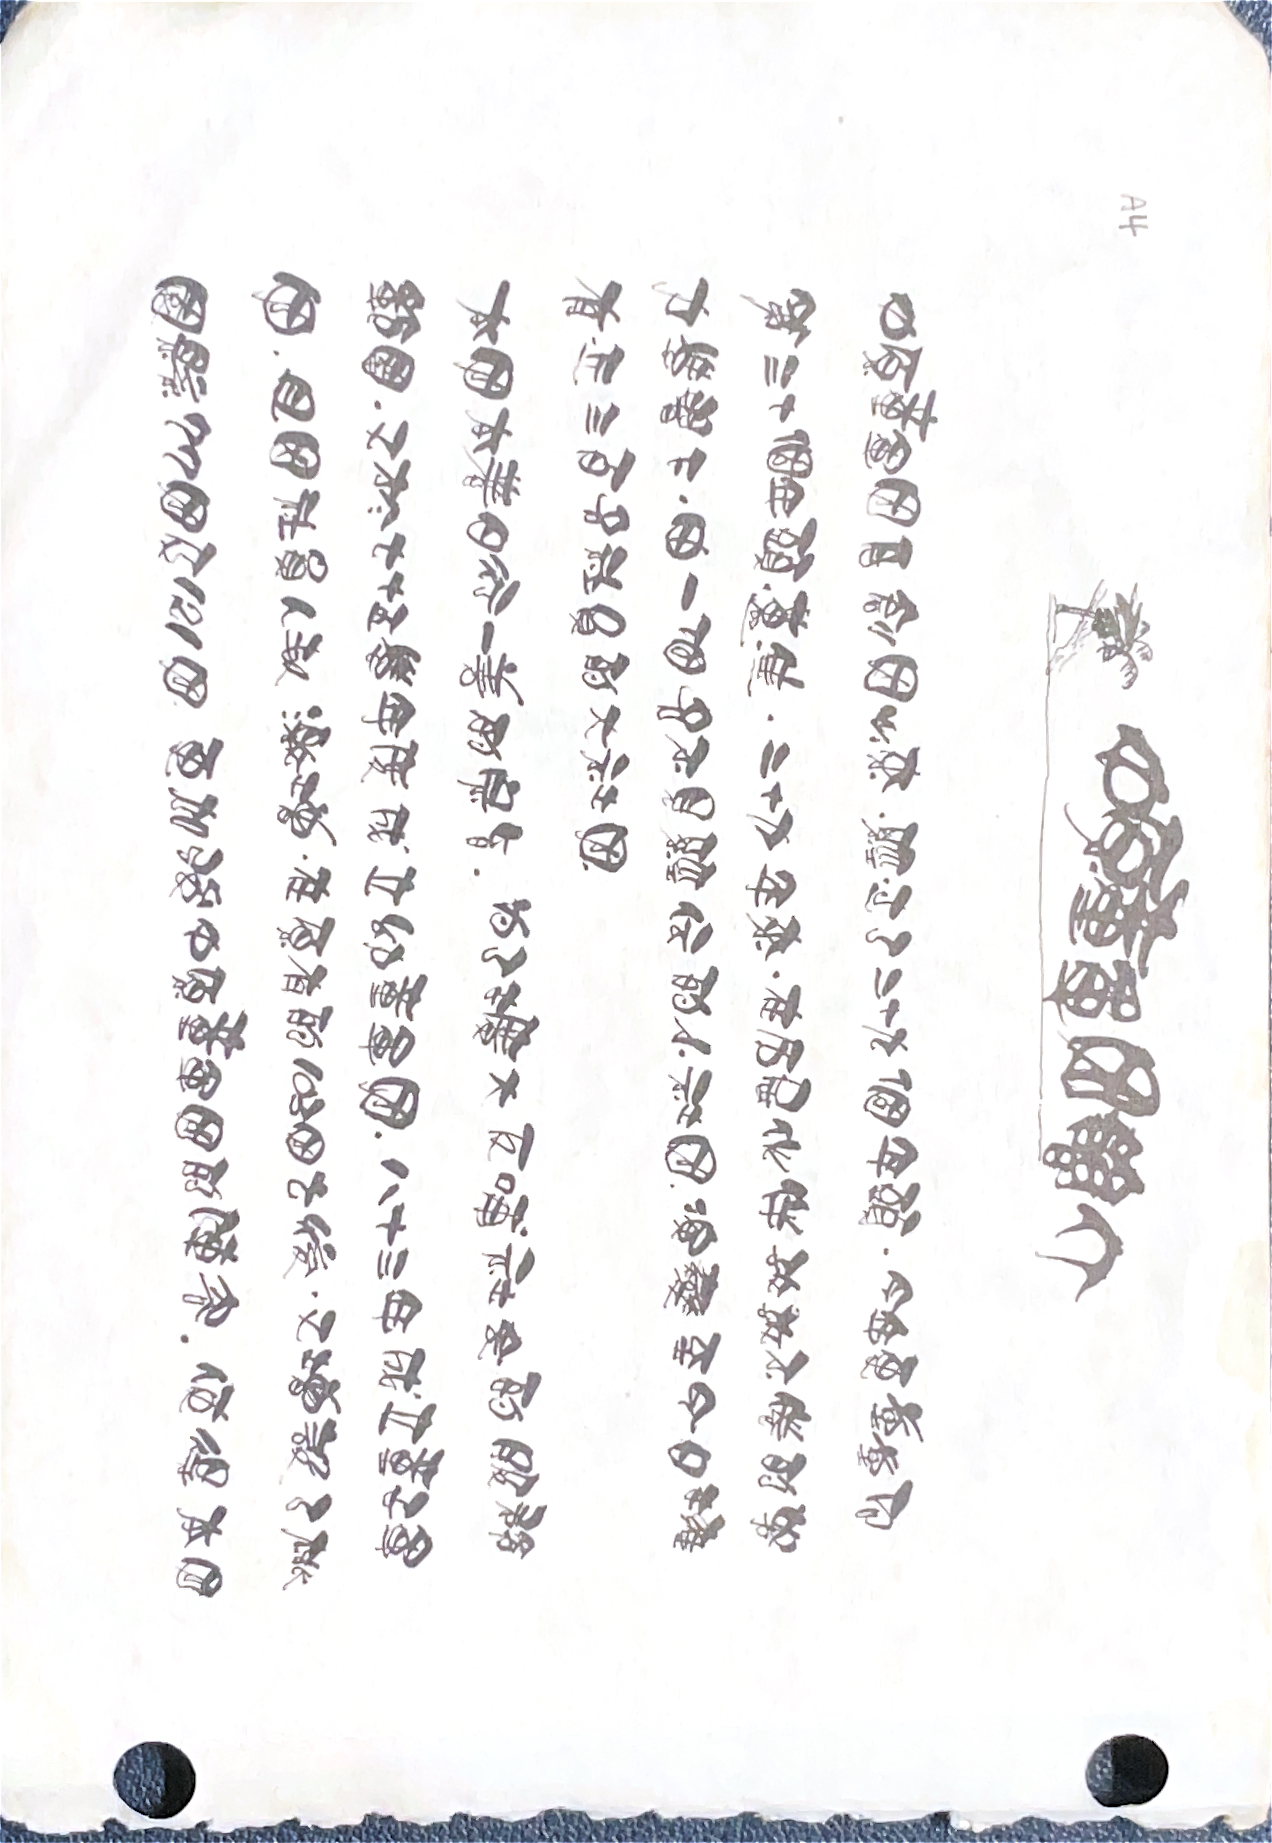 A4
中原童軍團簡介
中原童軍團自創團以來.經過了二十九個年頭.今年更堂堂向
第三十個年頭邁進.二十九年來.在歷屆伙伴孜孜不倦的努
力學習下.由一個名不見經傳的小社團.演變至今日擁
有近三百名社員的大社團.
本團本著日行一善的宗旨.為了擴大反哺社會的服務
範圍.又於七十五學年度成立幼童軍團.八十三年成立童子軍
團.且因社員人數漸增.在原有的103團之後.又增設了桃
園縣77團及121團.更加強中原童軍團的陣容.使得本團